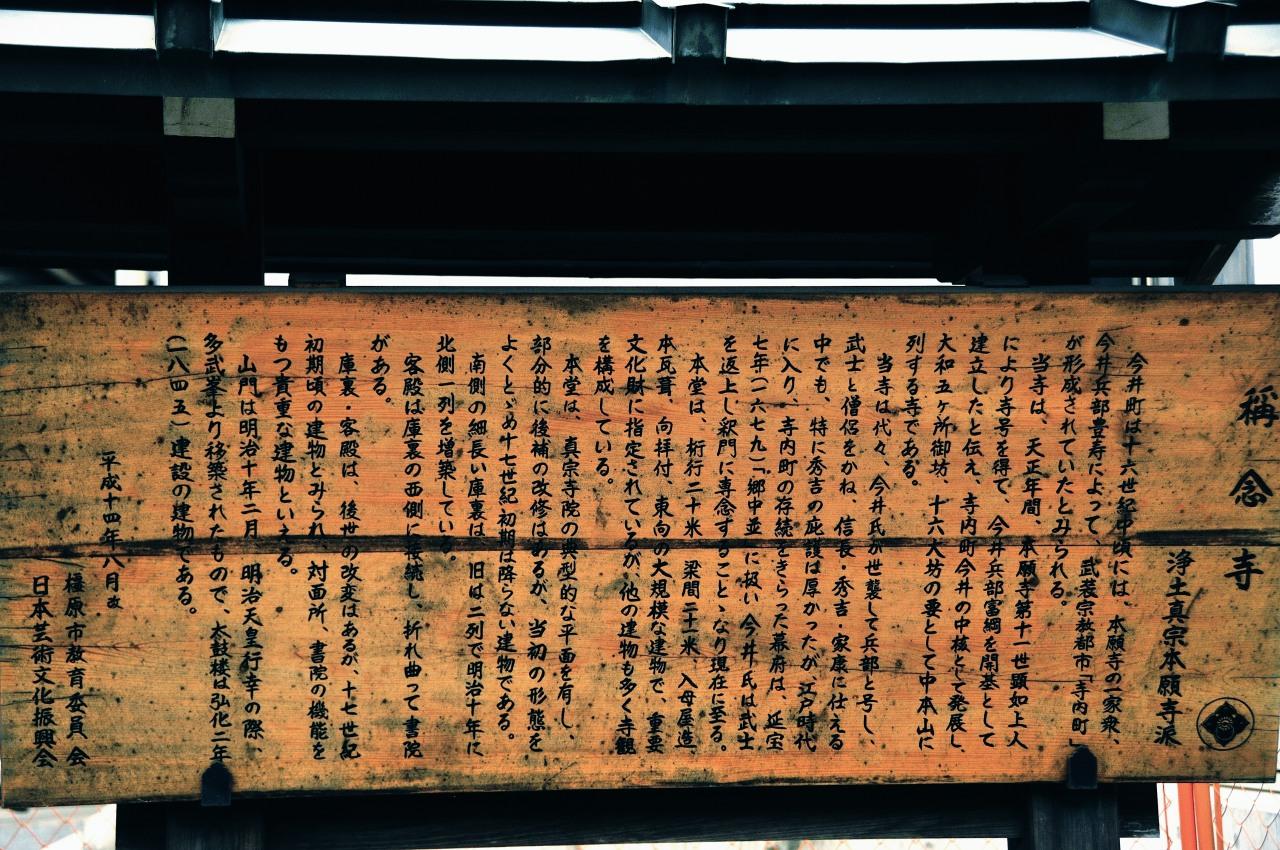 稱念寺
浄土真宗本願寺派
今井町は十六世紀中頃には、本願寺の一家衆、
今井兵部豊寿によって、武装宗教都市「寺内町」
が形成されていたとみられる。
当寺は、天正年間、本願寺第十一世顕如上人
により寺号を得て、今井兵部富綱を開基として
建立したと伝え、寺内町今井の中核として発展し、
大和五ヶ所御坊、十六大坊の要として中本山に
列する寺である。
当寺は代々、今井氏が世襲して兵部と号し、
武士と僧侶をかね、信長・秀吉・家康に仕える
中でも、特に秀吉の庇護は厚かったが、江戸時代
に入り、寺内町の存続をきらった幕府は、延宝
七年(一六七九)「郷中並」に扱い、今井氏は武士
を返上し釈門に専念することゝなり現在に至る。
本堂は、桁行二十米、梁間二十一米、入母屋造、
本瓦葺、向拝付、東向の大規模な建物で、重要
文化財に指定されているが、他の建物も多く寺観
を構成している。
本堂は、真宗寺院の典型的な平面を有し、
部分的に後補の改修はあるが、当初の形態を
よくとゞめ十七世紀初期は降らない建物である。
南側の細長い庫裏は、旧は二列で明治十年に
北側一列を増築している。
客殿は庫裏の西側に接続し、折れ曲って書院
がある。
庫裏・客殿は、後世の改変はあるが、十七世紀
初期頃の建物とみられ、対面所、書院の機能を
もつ貴重な建物といえる。
山門は明治十年二月、明治天皇行幸の際、
多武峯より移築されたもので、太鼓楼は弘化二年
(一八四五)建設の建物である。
平成十四年八月改
橿原市教育委員会
日本芸術文化振興会